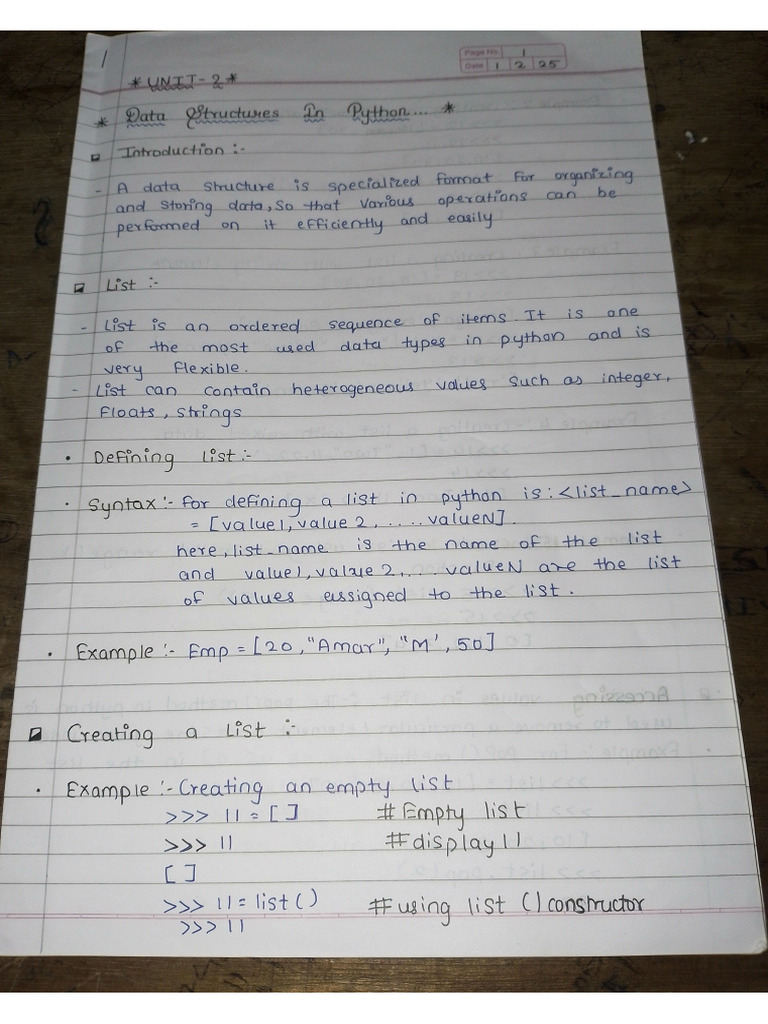 1
Page No. 1
Date 1 2 25
* UNIT-2 *
* Data Structures In Python... *
Introduction :-
- A data structure is specialized format for organizing
and storing data, so that various operations can be
performed on it efficiently and easily
List :-
- List is an ordered sequence of items. It is one
of the most used data types in python and is
very flexible.
- List can contain heterogeneous values such as integer,
Floats, strings
• Defining List :-
• Syntax :- for defining a list in python is : <list_name>
= [value1, value 2, .... valueN].
here, list_name is the name of the list
and value1, value 2, ... valueN are the list
of values assigned to the list.
• Example :- Emp = [20, "Amar", "M', 50]
Creating a List :-
• Example :- Creating an empty list
>>> l1 = [ ] # Empty list
>>> l1 # display l1
[ ]
>>> l1 = list ( ) # using list ( ) constructor
>>> l1